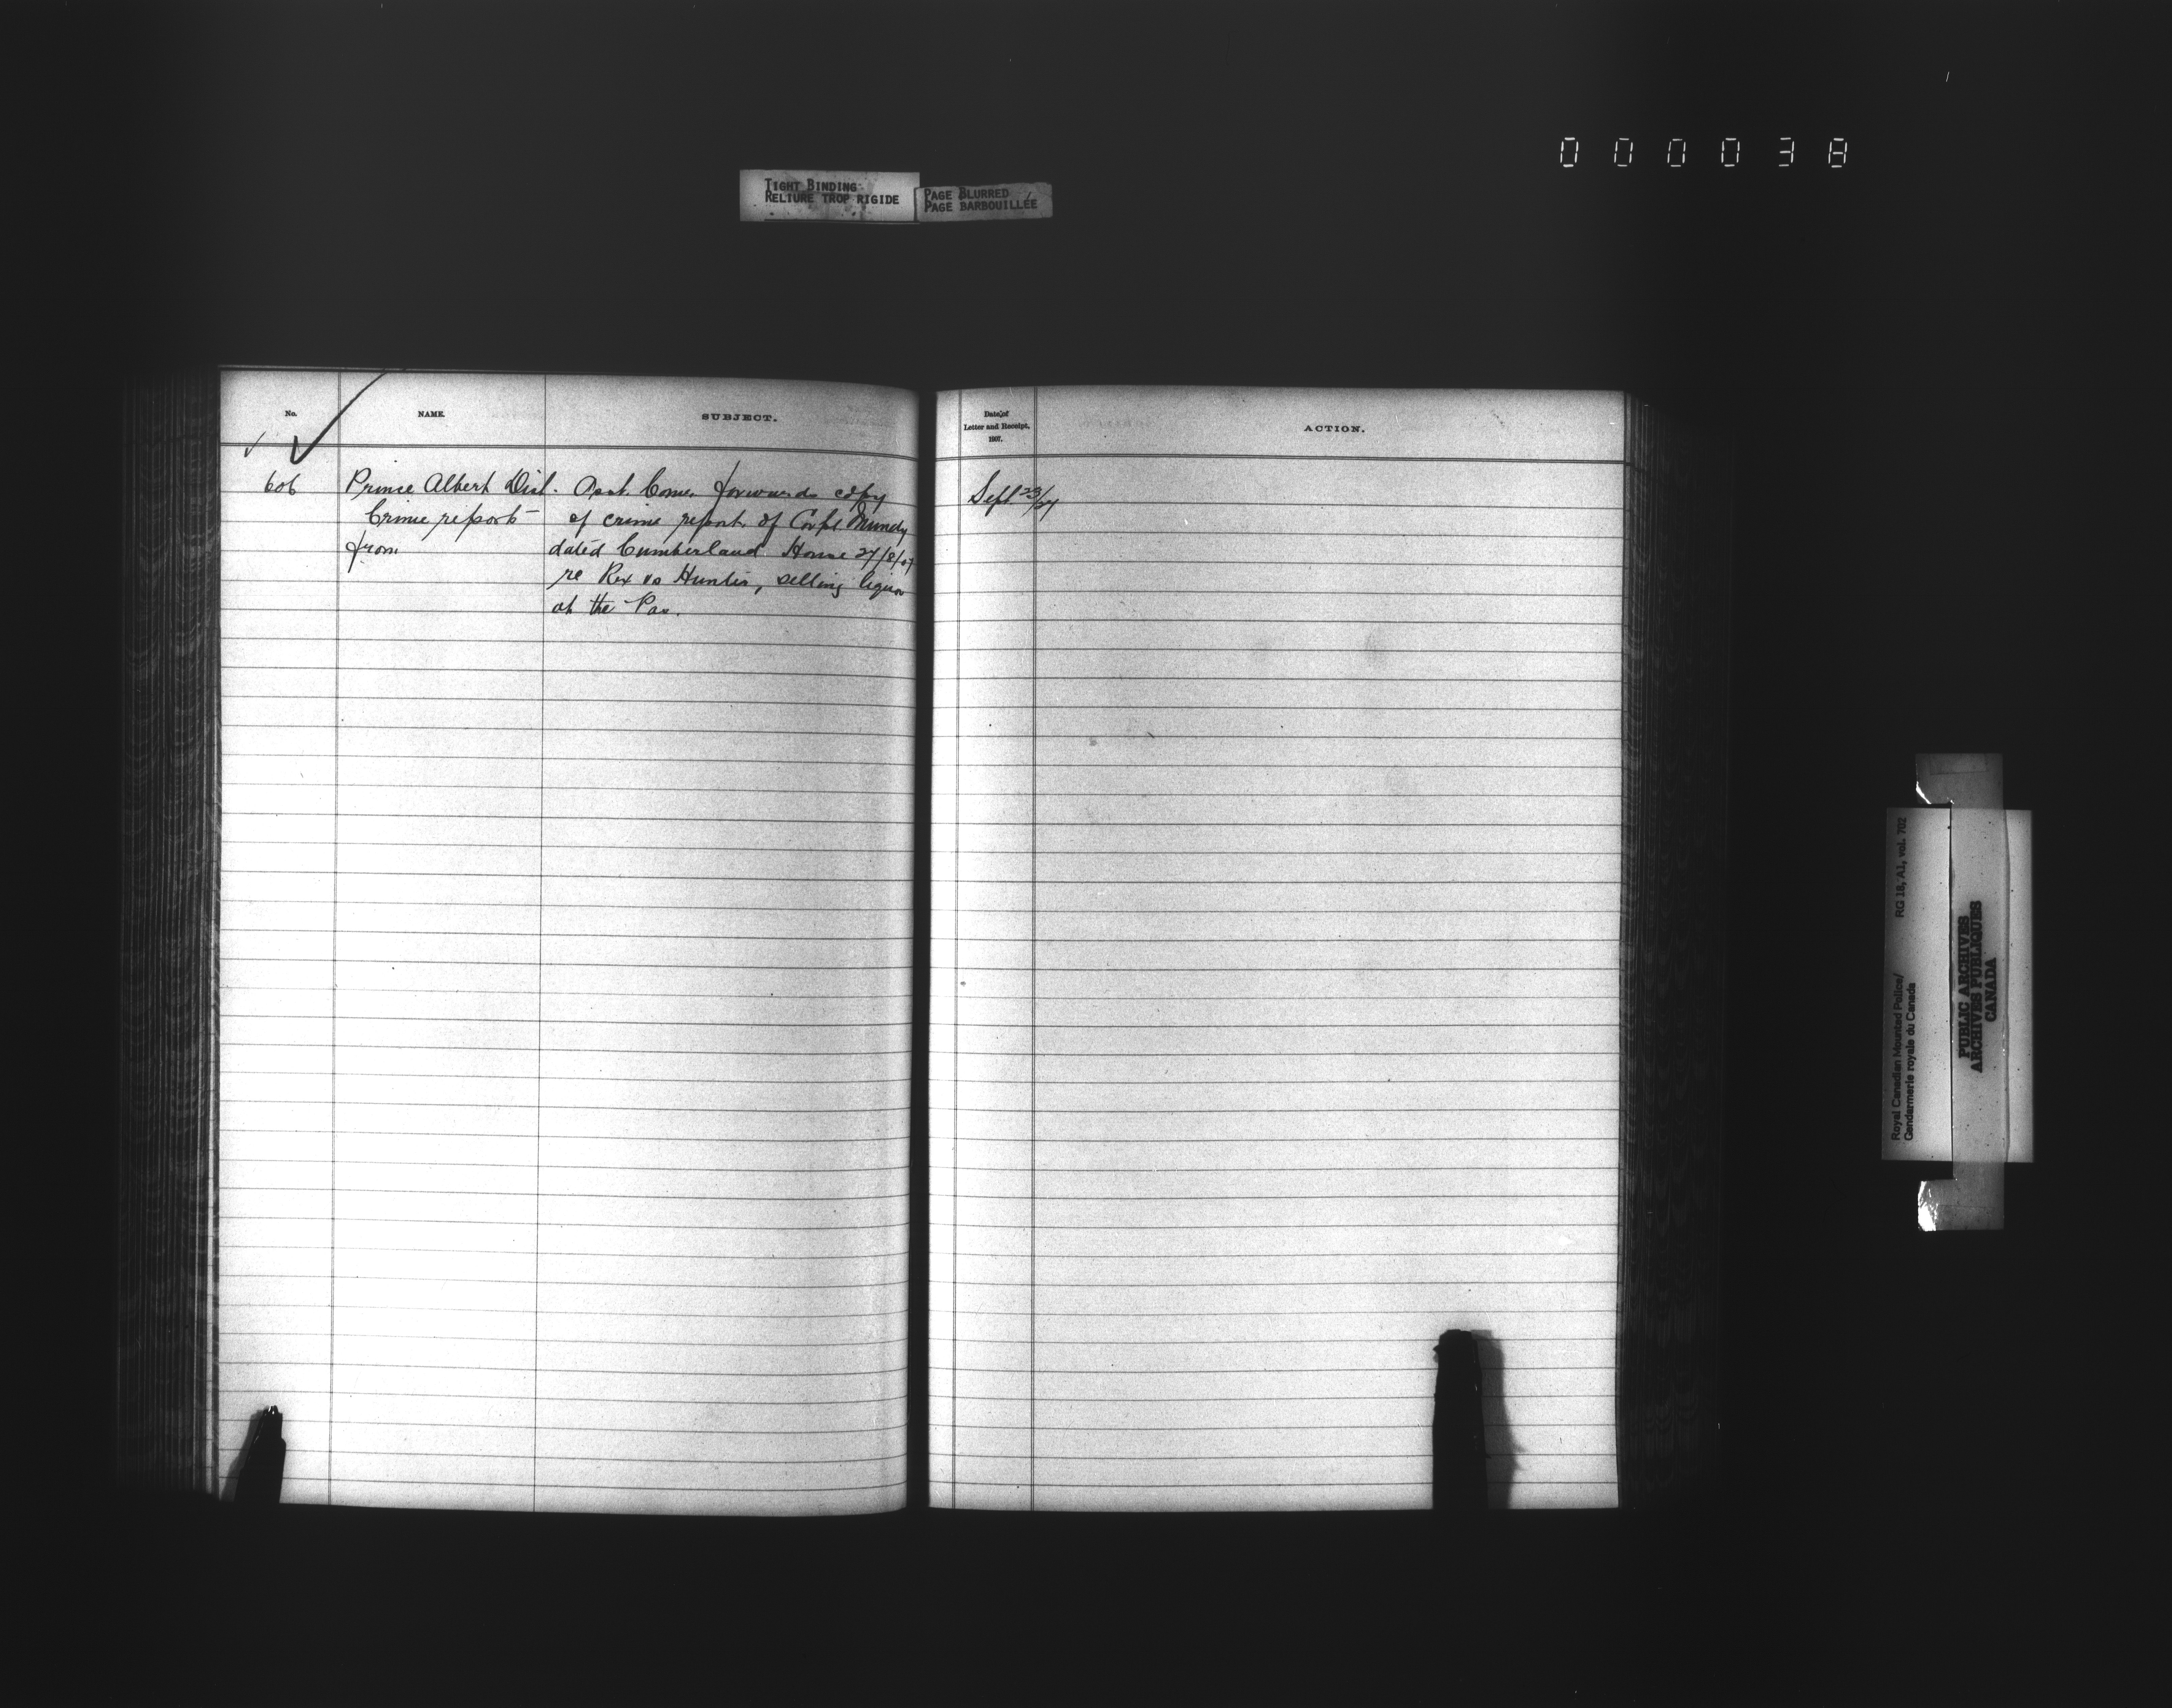 000038
TIGHT BINDING
RELIURE TROP RIGIDE
PAGE BLURRED
PAGE BARBOUILLÉE
No.
NAME.
SUBJECT.
606
Prince Albert Dist.
Crime reports
from
Asst. Comr. forwards copy
of crime report of Corpl. Munday
dated Cumberland House 27/8/07
re Rex vs Hunter, selling liquor
at the Pas.
Date of
Letter and Receipt,
1907.
ACTION.
Sept 23/27
Royal Canadian Mounted Police/
Gendarmerie royale du Canada
RG 18, A1, vol. 702
PUBLIC ARCHIVES
ARCHIVES PUBLIQUES
CANADA